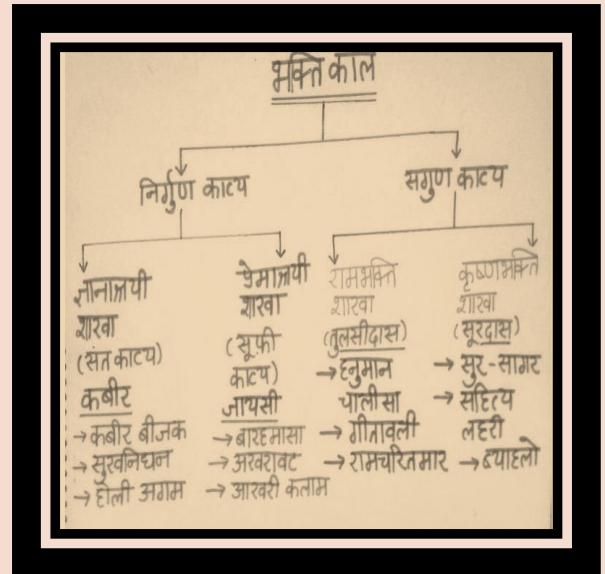 भक्ति काल
निर्गुण काव्य
सगुण काव्य
ज्ञानाश्रयी
शाखा
(संत काव्य)
कबीर
→ कबीर बीजक
→ सुखनिधन
→ होली अगम
प्रेमाश्रयी
शाखा
(सूफ़ी
काव्य)
जायसी
→ बारहमासा
→ अखरावट
→ आखरी कलाम
रामभक्ति
शाखा
(तुलसीदास)
→ हनुमान
चालीसा
→ गीतावली
→ रामचरितमार
कृष्णभक्ति
शाखा
(सूरदास)
→ सुर-सागर
→ सहित्य
लहरी
→ ब्याहलो